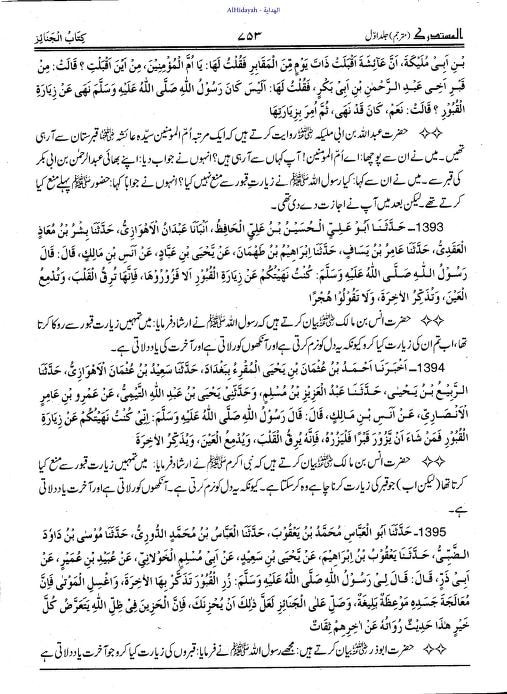 AlHidayah - الهداية
المستدرک (مترجم) جلد اوّل ۷۵۳ کِتَابُ الْجَنَائِز
بْنِ اَبِیْ مُلَیْکَةَ، اَنَّ عَائِشَةَ اَقْبَلَتْ ذَاتَ یَوْمٍ مِّنَ الْمَقَابِرِ فَقُلْتُ لَهَا: یَا اُمَّ الْمُؤْمِنِیْنَ، مِنْ اَیْنَ اَقْبَلْتِ؟ قَالَتْ: مِنْ
قَبْرِ اَخِیْ عَبْدِ الرَّحْمٰنِ بْنِ اَبِیْ بَکْرٍ، فَقُلْتُ لَهَا: اَلَیْسَ کَانَ رَسُوْلُ اللّٰهِ صَلَّی اللّٰهُ عَلَیْهِ وَسَلَّمَ نَهٰی عَنْ زِیَارَةِ
الْقُبُوْرِ؟ قَالَتْ: نَعَمْ، کَانَ قَدْ نَهٰی، ثُمَّ اُمِرَ بِزِیَارَتِهَا
❖❖ حضرت عبداللہ بن ابی ملیکہ ﷜ روایت کرتے ہیں کہ ایک مرتبہ اُم المومنین سیّدہ عائشہ ﷝ قبرستان سے آرہی
تھیں۔ میں نے ان سے پوچھا: اے اُم المومنین! آپ کہاں سے آرہی ہیں؟ انہوں نے جواب دیا: اپنے بھائی عبدالرحمٰن بن ابی بکر
کی قبر سے۔ میں نے ان سے کہا: کیا رسول اللہ ﷺ نے زیارتِ قبور سے منع نہیں کیا؟ انہوں نے جواباً کہا: حضور ﷺ پہلے منع کیا
کرتے تھے۔ لیکن بعد میں آپ نے اجازت دے دی تھی۔
1393۔ حَدَّثَنَا اَبُوْ عَلِیٍّ الْحُسَیْنُ بْنُ عَلِیٍّ الْحَافِظُ، اَنْبَاَنَا عَبْدَانُ الْاَهْوَازِیُّ، حَدَّثَنَا بِشْرُ بْنُ مُعَاذٍ
الْعَقَدِیُّ، حَدَّثَنَا عَامِرُ بْنُ یَسَافٍ، حَدَّثَنَا اِبْرَاهِیْمُ بْنُ طَهْمَانَ، عَنْ یَّحْیَی بْنِ عَبَّادٍ، عَنْ اَنَسِ بْنِ مَالِكٍ، قَالَ: قَالَ
رَسُوْلُ اللّٰهِ صَلَّی اللّٰهُ عَلَیْهِ وَسَلَّمَ: کُنْتُ نَهَیْتُکُمْ عَنْ زِیَارَةِ الْقُبُوْرِ اَلَا فَزُوْرُوْهَا، فَاِنَّهَا تُرِقُّ الْقَلْبَ، وَتُدْمِعُ
الْعَیْنَ، وَتُذَکِّرُ الْاٰخِرَةَ، وَلَا تَقُوْلُوْا هُجْرًا
❖❖ حضرت انس بن مالک ﷜ بیان کرتے ہیں کہ رسول اللہ ﷺ نے ارشاد فرمایا: میں تمہیں زیارتِ قبور سے روکا کرتا
تھا، اب تم ان کی زیارت کیا کرو کیونکہ یہ دل کو نرم کرتی ہے اور آنکھوں کو رلاتی ہے اور آخرت کی یاد دلاتی ہے۔
1394۔ اَخْبَرَنَا اَحْمَدُ بْنُ عُثْمَانَ بْنِ یَحْیَی الْمُقْرِءُ بِبَغْدَادَ، حَدَّثَنَا سَعِیْدُ بْنُ عُثْمَانَ الْاَهْوَازِیُّ، حَدَّثَنَا
الرَّبِیْعُ بْنُ یَحْیٰی، حَدَّثَنَا عَبْدُ الْعَزِیْزِ بْنُ مُسْلِمٍ، وَحَدَّثَنِیْ یَحْیَی بْنُ عَبْدِ اللّٰهِ التَّیْمِیُّ، عَنْ عَمْرِو بْنِ عَامِرٍ
الْاَنْصَارِیِّ، عَنْ اَنَسِ بْنِ مَالِكٍ، قَالَ: قَالَ رَسُوْلُ اللّٰهِ صَلَّی اللّٰهُ عَلَیْهِ وَسَلَّمَ: اِنِّیْ کُنْتُ نَهَیْتُکُمْ عَنْ زِیَارَةِ
الْقُبُوْرِ فَمَنْ شَاءَ اَنْ یَّزُوْرَ قَبْرًا فَلْیَزُرْهُ، فَاِنَّهُ یُرِقُّ الْقَلْبَ، وَیُدْمِعُ الْعَیْنَ، وَیُذَکِّرُ الْاٰخِرَةَ
❖❖ حضرت انس بن مالک ﷜ بیان کرتے ہیں کہ نبی اکرم ﷺ نے ارشاد فرمایا: میں تمہیں زیارتِ قبور سے منع کیا
کرتا تھا (لیکن اب) جو قبر کی زیارت کرنا چاہے وہ کر سکتا ہے۔ کیونکہ یہ دل کو نرم کرتی ہے۔ آنکھوں کو رلاتی ہے اور آخرت یاد دلاتی
ہے۔
1395۔ حَدَّثَنَا اَبُو الْعَبَّاسِ مُحَمَّدُ بْنُ یَعْقُوْبَ، حَدَّثَنَا الْعَبَّاسُ بْنُ مُحَمَّدٍ الدُّوْرِیُّ، حَدَّثَنَا مُوْسَی بْنُ دَاوٗدَ
الضَّبِّیُّ، حَدَّثَنَا یَعْقُوْبُ بْنُ اِبْرَاهِیْمَ، عَنْ یَّحْیَی بْنِ سَعِیْدٍ، عَنْ اَبِیْ مُسْلِمٍ الْخَوْلَانِیِّ، عَنْ عُبَیْدِ بْنِ عُمَیْرٍ، عَنْ
اَبِیْ ذَرٍّ، قَالَ: قَالَ لِیْ رَسُوْلُ اللّٰهِ صَلَّی اللّٰهُ عَلَیْهِ وَسَلَّمَ: زُرِ الْقُبُوْرَ تَذَکَّرْ بِهَا الْاٰخِرَةَ، وَاغْسِلِ الْمَوْتٰی فَاِنَّ
مُعَالَجَةَ جَسَدِهِ مَوْعِظَةٌ بَلِیْغَةٌ، وَصَلِّ عَلَی الْجَنَائِزِ لَعَلَّ ذٰلِكَ اَنْ یُّحْزِنَكَ، فَاِنَّ الْحَزِیْنَ فِیْ ظِلِّ اللّٰهِ یَتَعَرَّضُ کُلَّ
خَیْرٍ هٰذَا حَدِیْثٌ رُوَاتُهُ عَنْ اٰخِرِهِمْ ثِقَاتٌ
❖❖ حضرت ابوذر ﷜ بیان کرتے ہیں: مجھے رسول اللہ ﷺ نے فرمایا: قبروں کی زیارت کیا کرو جو آخرت یاد دلاتی ہے